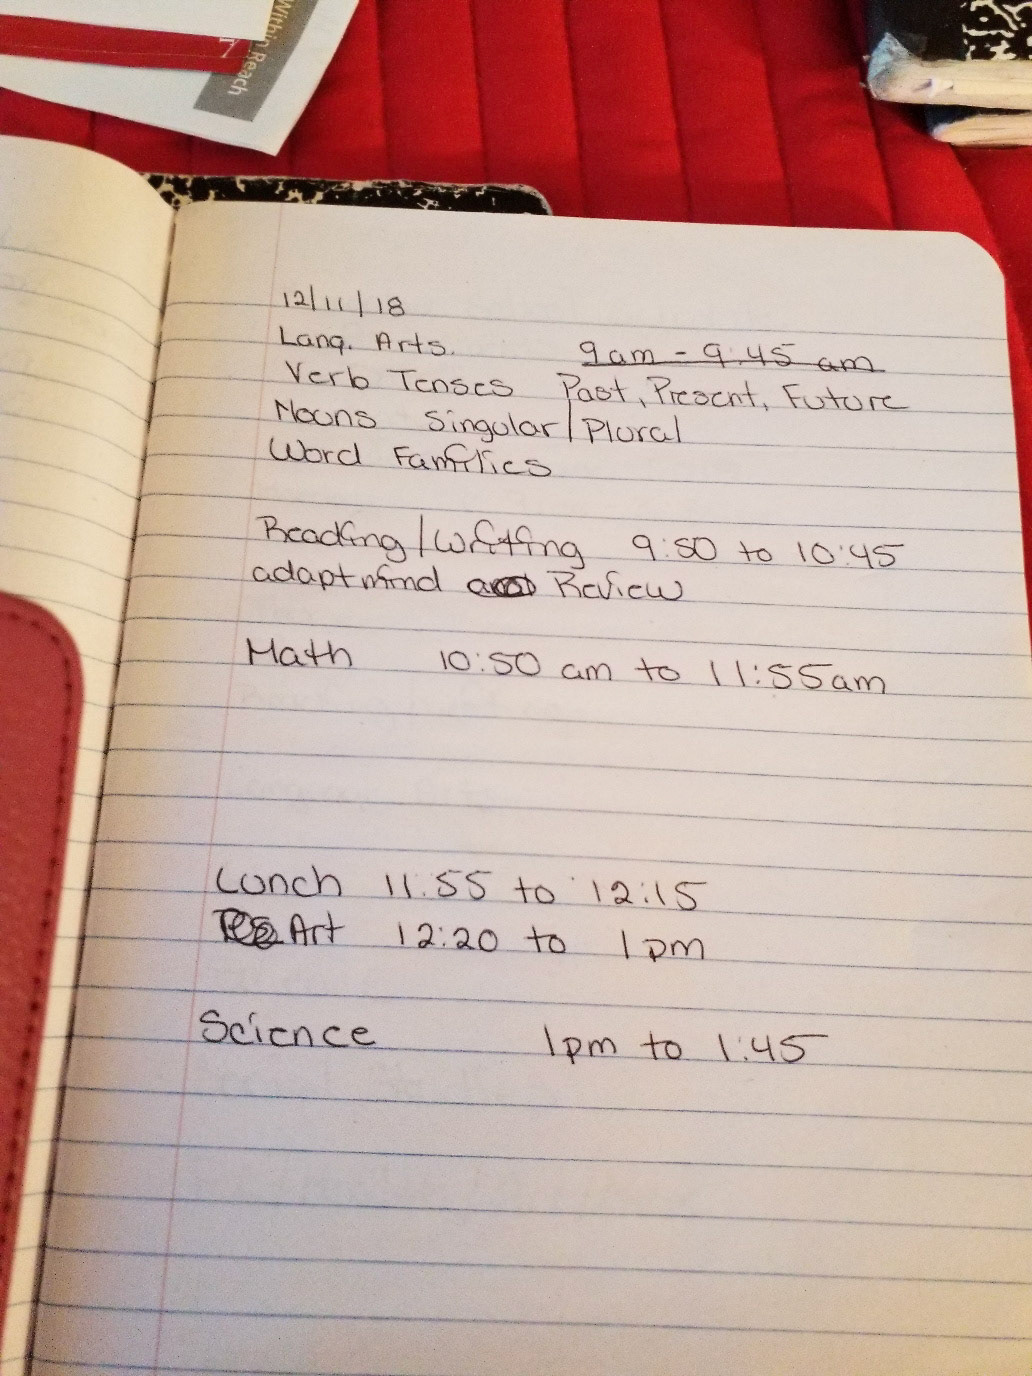 Within Reach
12/11/18
Lang. Arts. 9am - 9:45 am
Verb Tenses Past, Present, Future
Nouns Singular/Plural
Word Families
Reading/Writing 9:50 to 10:45
adaptmind Review
Math 10:50 am to 11:55am
Lunch 11:55 to 12:15
Art 12:20 to 1pm
Science 1pm to 1:45